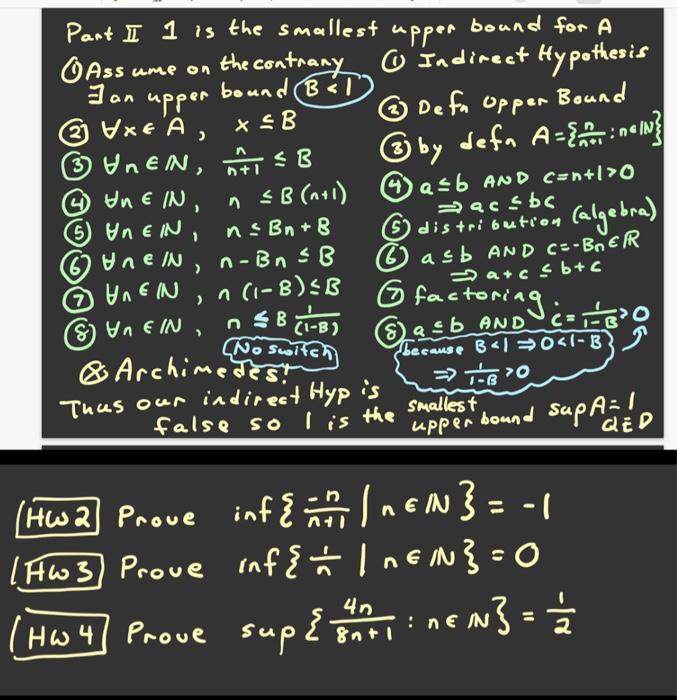 Part II 1 is the smallest upper bound for A
① Assume on the contrary ① Indirect Hypothesis
∃ an upper bound B < 1
② ∀x ∈ A, x ≤ B ② Defn Upper Bound
③ ∀n ∈ ℕ, n/(n+1) ≤ B ③ by defn A = {n/(n+1) : n ∈ ℕ}
④ ∀n ∈ ℕ, n ≤ B(n+1) ④ a ≤ b AND c = n+1 > 0
⇒ ac ≤ bc
⑤ ∀n ∈ ℕ, n ≤ Bn + B ⑤ distribution (algebra)
⑥ ∀n ∈ ℕ, n - Bn ≤ B ⑥ a ≤ b AND c = -Bn ∈ ℝ
⇒ a + c ≤ b + c
⑦ ∀n ∈ ℕ, n(1-B) ≤ B ⑦ factoring
⑧ ∀n ∈ ℕ, n ≤ B 1/(1-B) ⑧ a ≤ b AND c = 1/(1-B) > 0
(No switch) (because B < 1 ⇒ 0 < 1-B
⇒ 1/(1-B) > 0
⊗ Archimedes!
Thus our indirect Hyp is
false so 1 is the smallest upper bound sup A = 1
QED
HW 2 Prove inf{-n/(n+1) | n ∈ ℕ} = -1
HW 3 Prove inf{1/n | n ∈ ℕ} = 0
HW 4 Prove sup{4n/(8n+1) : n ∈ ℕ} = 1/2